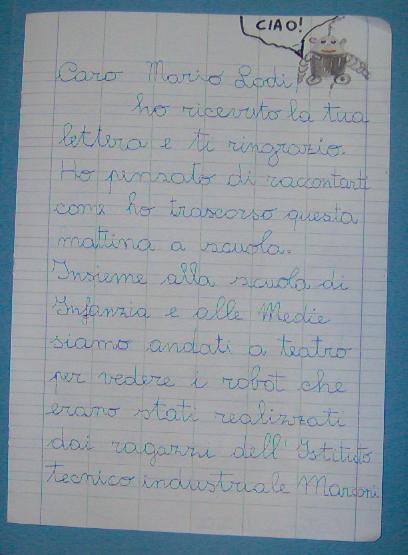 CIAO!
Caro Mario Lodi,
ho ricevuto la tua
lettera e ti ringrazio.
Ho pensato di raccontarti
come ho trascorso questa
mattina a scuola.
Insieme alla scuola di
Infanzia e alle Medie
siamo andati a teatro
per vedere i robot che
erano stati realizzati
dai ragazzi dell'Istituto
tecnico industriale Marconi